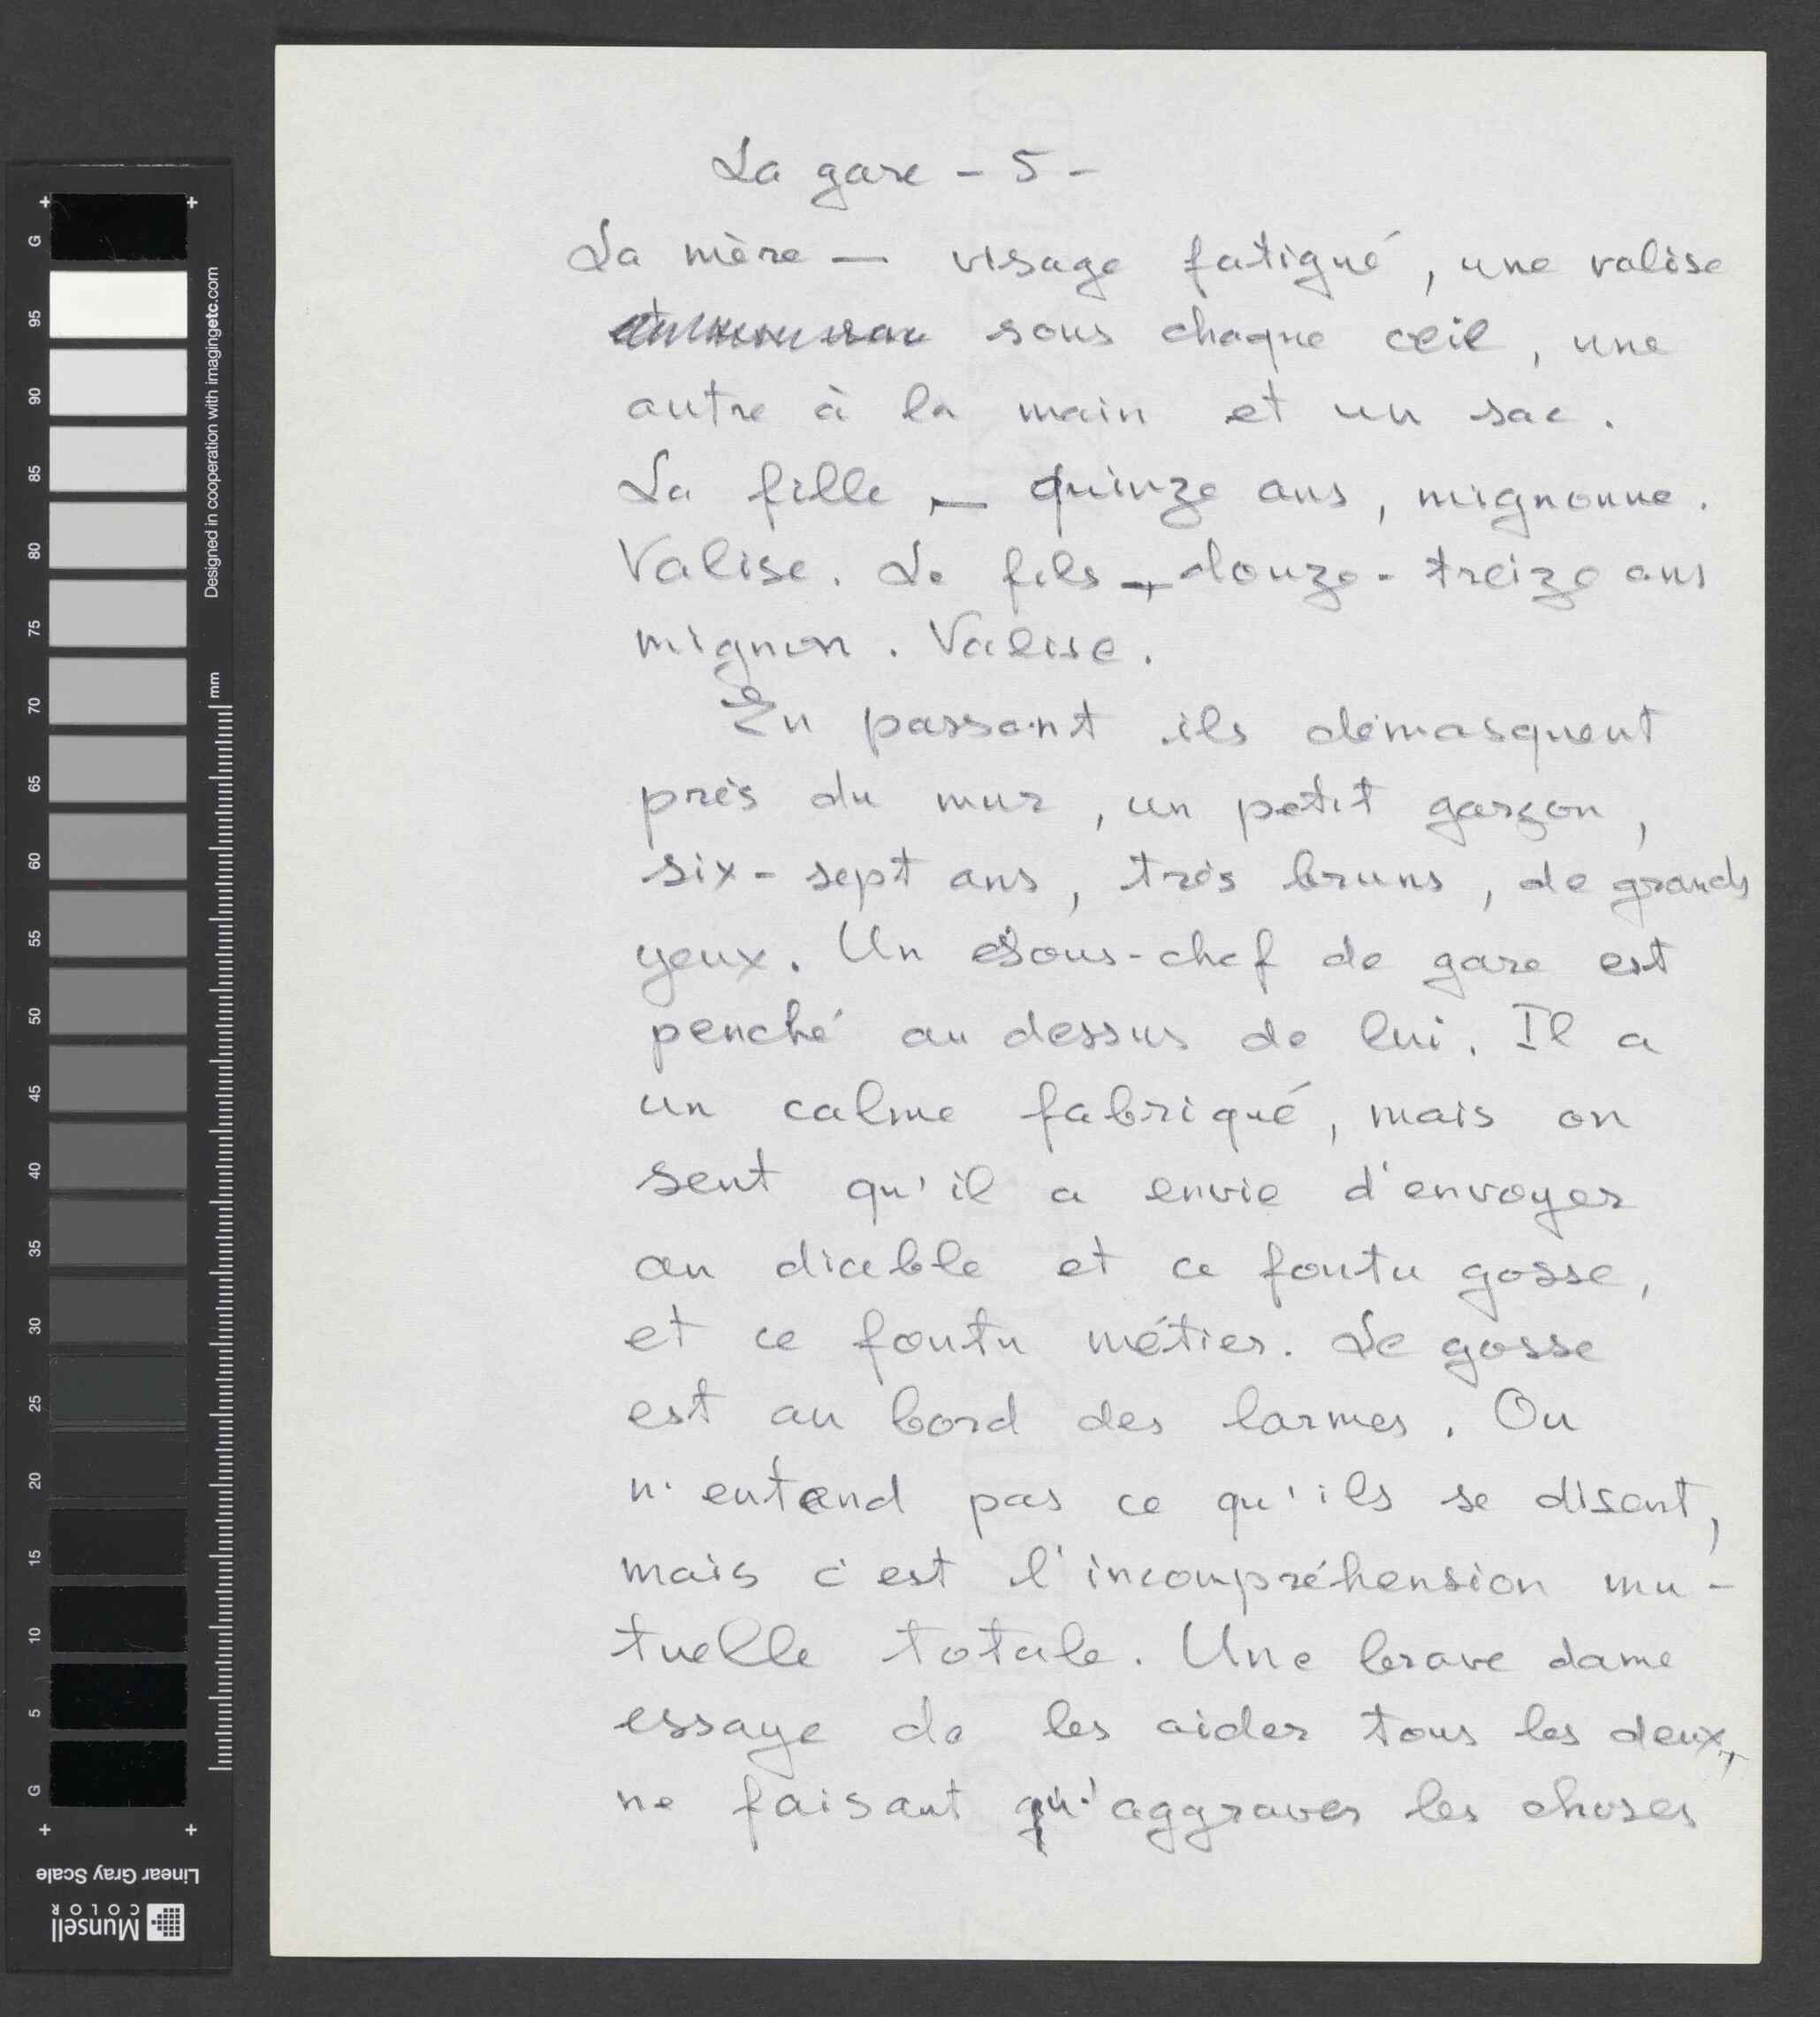 La gare - 5 -
La mère — visage fatigué, une valise
sous chaque œil, une
autre à la main et un sac.
La fille — quinze ans, mignonne.
Valise. Le fils — douze - treize ans
mignon. Valise.
En passant ils démasquent
près du mur, un petit garçon,
six - sept ans, très bruns, de grands
yeux. Un sous-chef de gare est
penché au dessus de lui. Il a
un calme fabriqué, mais on
sent qu'il a envie d'envoyer
au diable et ce foutu gosse,
et ce foutu métier. Le gosse
est au bord des larmes. On
n'entend pas ce qu'ils se disent,
mais c'est l'incompréhension mu-
tuelle totale. Une brave dame
essaye de les aider tous les deux,
ne faisant qu'aggraver les choses
G
95
90
85
80
75
70
65
60
55
50
45
40
35
30
25
20
15
10
5
G
Designed in cooperation with imagingetc.com
mm
Linear Gray Scale
Munsell
COLOR